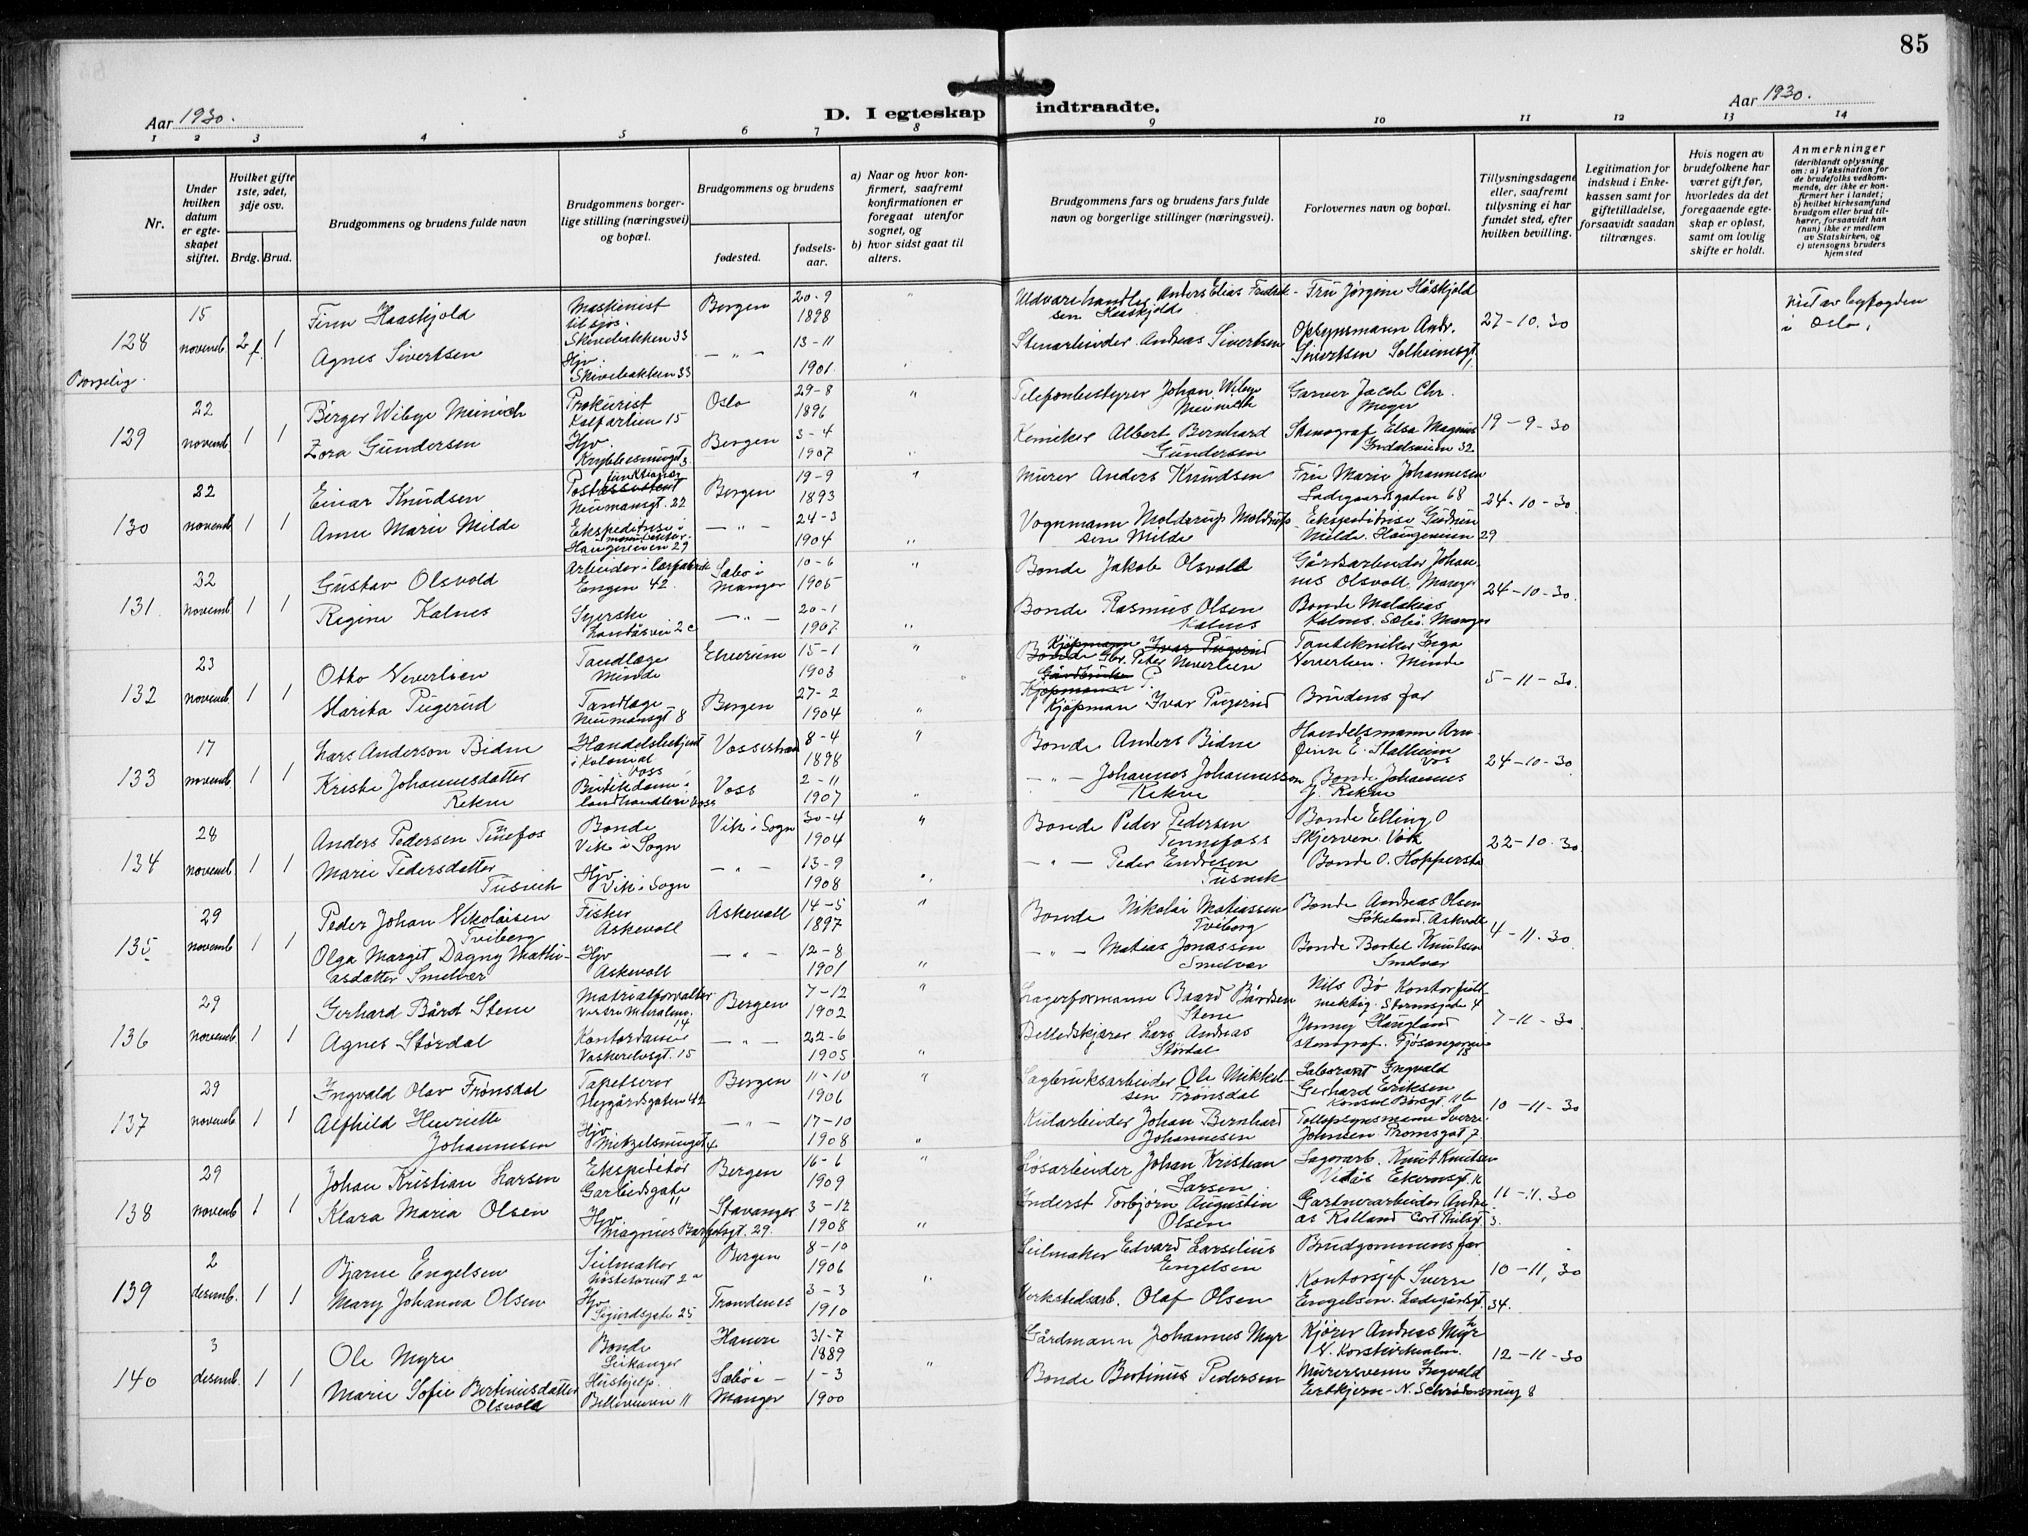 85
Aar 1930.
D. I egteskap indtraadte.
Aar 1930.
1 2 3 4 5 6 7 8 9 10 11 12 13 14
Nr.
Under
hvilken
datum
er egte-
skapet
stiftet.
Hvilket gifte
1ste, 2det,
3dje osv.
Brdg. Brud.
Brudgommens og brudens fulde navn
Brudgommens borger-
lige stilling (næringsvei)
og bopæl.
Brudgommens og brudens
fødested.
fødsels-
aar.
a) Naar og hvor kon-
firmert, saafremt
konfirmationen er
foregaat utenfor
sognet, og
b) hvor sidst gaat til
alters.
Brudgommens fars og brudens fars fulde
navn og borgerlige stillinger (næringsvei).
Forlovernes navn og bopæl.
Tillysningsdagene
eller, saafremt
tillysning ei har
fundet sted, efter
hvilken bevilling.
Legitimation for
indskud i Enke-
kassen samt for
giftetilladelse,
forsaavidt saadan
tiltrænges.
Hvis nogen av
brudefolkene har
været gift før,
hvorledes da det
foregaaende egte-
skap er opløst,
samt om lovlig
skifte er holdt.
Anmerkninger
(deriblandt oplysning
om: a) Vaksination for
de brudefolks vedkom-
mende, der ikke er kon-
firmert her i landet;
b) hvilket kirkesamfund
brudgom eller brud til-
hører, forsaavidt han
(hun) ikke er medlem
av Statskirken, og
c) utensogns bruders
hjemsted
128
Borgelig.
15
novemb.
2 f. 1
Finn Haaskjold
Agnes Sivertsen
Maskinist
til sjøs.
Skivebakken 33
Hjv.
Skivebakken 33
Bergen
— " —
20-9
1898
13-11
1901
Anders Elias Fredrik-
sen Haaskjold
Stenarbeider Andreas Sivertsen
Fru Jørgine Håskjold
Opsynsmann Andr.
Sivertsen Solheimsgt.
27-10.30
Viet av byfogden
i Oslo.
129
22
novemb
1 1
Birger Wibye Meinich
Zora Gundersen
Prokurist
Kalfarlien 15
Hjv.
Kryblesmuget 3
Oslo
Bergen
29-8
1896
3-4
1907
Telefonbestyrer Johan Wibye
Meinich
Kemiker Albert Bernhard
Gundersen
Garver Jacob Chr.
Meyer
Stenograf Elsa Magnus
Inndalsveien 32
19-9-30
130
22
novemb
1 1
Einar Knudsen
Anna Marie Milde
Post
Neumansgt. 22
Ekspeditrise i
Haugeveien 29
Bergen
— " —
19-9
1893
24-3
1904
Murer Anders Knudsen
Vognmann Molderup Moldrup-
sen Milde
Fru Marie Johannesen
Ladegaardsgaten 68
Ekspeditrise Gudrun
Milde. Haugeveien 29
24-10-30
131
32
novemb.
1 1
Gustav Olsvold
Regine Kalnes
Arbeider i
Engen 42.
Syerske
Landåsvei 2c
Sæbø i
Manger
— " —
10-6
1905
20-1
1907
Bonde Jakob Olsvold
Bonde Rasmus Olsen
Kalnes
Gårdsarbeider Johan-
nes Olsvoll. Manger
Bonde Malakias
Kalnes. Sæbø. Manger
24-10-30.
132
23
novemb.
1 1
Otto Neverlien
Marita Pugerud
Tandlæge
Minde
Tandlæge
Neumansgt 8
Elverum
Bergen
15-1
1903
27-2
1904
Kjøpmann Ivar Pugerud
Bonde Gbr. Peter Neverlien
Gårdbruker
Kjøpmann P.
Kjøpman Ivar Pugerud
Tantekniker Inga
Neverlien. Minde
Brudens far
5-11-30.
133
17
novemb.
1 1
Lars Anderson Bidne
Kristi Johannesdatter
Rekve
Handelsbetjent
i kolonial
Voss
Butikdame i
landhandleri Voss
Vossestrand
Voss
8-4
1898
2-11
1907
Bonde Anders Bidne
— " — Johannes Johannesson
Rekve
Handelsmann Arn
E. Stalheim
Vos
Bonde Johannes
J. Rekve
24-10-30
134
28
novemb.
1 1
Anders Pedersen Tennefos
Marie Pedersdatter
Tusvik
Bonde
Vik i Sogn
Hjv
Vik i Sogn
Vik i Sogn
— " —
30-4
1904
13-9
1908
Bonde Peder Pedersen
Tennefoss
— " — Peder Endresen
Tusvik
Bonde Elling O
Skjerven. Vik
Bonde O. Hopperstad
22-10.30
135
29
novemb
1 1
Peder Johan Nikolaisen
Tviberg
Olga Margit Dagny Mathi-
asdatter Smelvær
Fisker
Askevoll
Hjv
Askevoll
Askevoll
— " —
14-5
1897
12-8
1901
Bonde Nikolai Matiassen
Tviberg
— " — Matias Jonassen
Smelvær
Bonde Andreas Olsen
Askvoll
Bonde Bertel Knutsen
Smelvær
4-11.30
136
29
novemb.
1 1
Gerhard Bård Stene
Agnes Størdal
Matrialforvalter
14
Kontordame
Vaskerelvsgt. 15
Bergen
— " —
7-12
1902
22-6
1905
Lagerformann Baard Bårdsen
Stene
Billedskjærer Lars Andreas
Størdal
Nils Bø Kontorfull-
mektig. Stormsgate 4
Jenny Haugland
stenograf. Fjøsangerv.
18
7-11-30.
137
29
novemb
1 1
Ingvald Olav Frønsdal
Alfhild Henriette
Johannesen
Tapetserer
Nygårdsgaten 42
Hjv
Mitzelsmuget 4
Bergen
— " —
11-10
1906
17-10
1908
Sagbruksarbeider Ole Mikkel-
sen Frønsdal
Kularbeider Johan Bernhard
Johannesen
Laborant Ingvald
Gerhard Eriksen
Konsul Børsgt. 11b
Tollopsynsmann Sverre
Johnsen Tromsgat 7.
10-11-30
138
29
novemb
1 1
Johan Kristian Larsen
Klara Maria Olsen
Ekspeditør
11
Hjv
Magnus Barfotsgt. 29.
Bergen
Stavanger
16-6
1909
3-12
1908
Løsarbeider Johan Kristian
Larsen
Torbjørn Augustin
Olsen
Lagerarb. Knut Knutsen
Gartnerarbeider Andre-
as Rolland Carl Thilsgt. 3.
11-11.30
139
2
desemb.
1 1
Bjarne Engelsen
Mary Johanna Olsen
Seilmaker
Nøstetorvet 2a
Hjv
Sigurdsgate 25
Bergen
Trondenes
8-10
1906
3-3
1910
Seilmaker Edvard Larselius
Engelsen
Verkstedsarb. Olaf Olsen
Brudgommens far
Kontorsjef Sverre
Engelsen. Ladegårdsgt. 34.
10-11.30
140
3
desemb.
1 1
Ole Myre
Marie Sofie Bertinusdatter
Olsvold
Bonde
Leikanger
Hushjelp.
Belleveien 11
Haus
Sæbø i —
Manger
31-7
1889
1-3
1900
Gårdmann Johannes Myr
Bonde Bertinus Pedersen
Kjører Andreas Myr
N. Korskirkealm.
Murersvenn Ingvald
Eetkjern - N. Schrødersmug 8
12-11-30